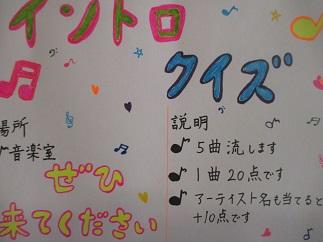 イントロ
クイズ
場所
音楽室
ぜひ
来てください
説明
5曲流します
1曲20点です
アーティスト名も当てると
+10点です